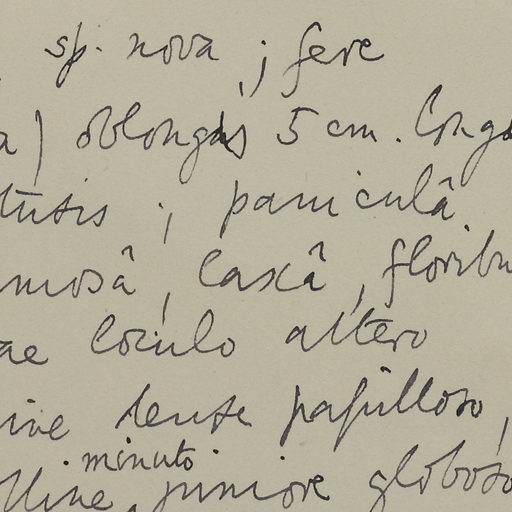 sp. nova ; fere
a) oblongis 5 cm. longi
tusis ; paniculâ
mosâ, laxâ, floribu
ae loculo altero
ine dense papilloso,
minuto
lline, juniore globoso